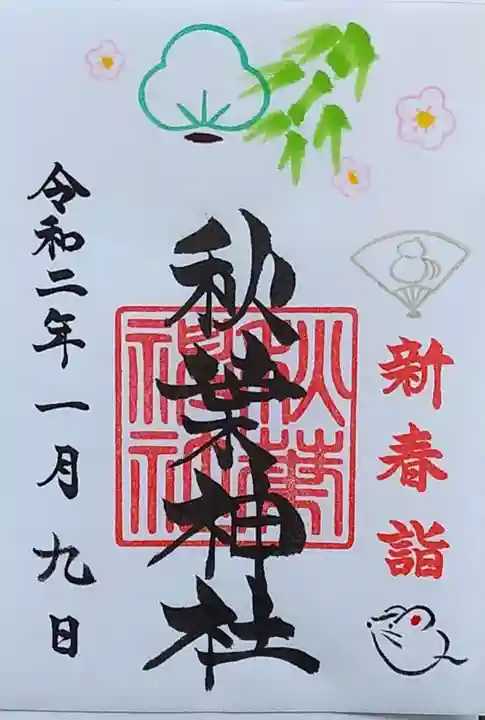 新春詣
秋葉神社
秋葉
神社
令和二年一月九日